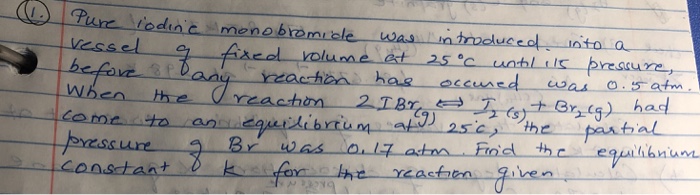 1. Pure iodine monobromide was introduced into a
vessel of fixed volume at 25°C until its pressure,
before any reaction has occured was 0.5 atm.
When the reaction 2IBr(g) ⇔ I2(s) + Br2(g) had
come to an equilibrium at 25°c, the partial
pressure of Br was 0.17 atm. Find the equilibrium
constant k for the reaction given.